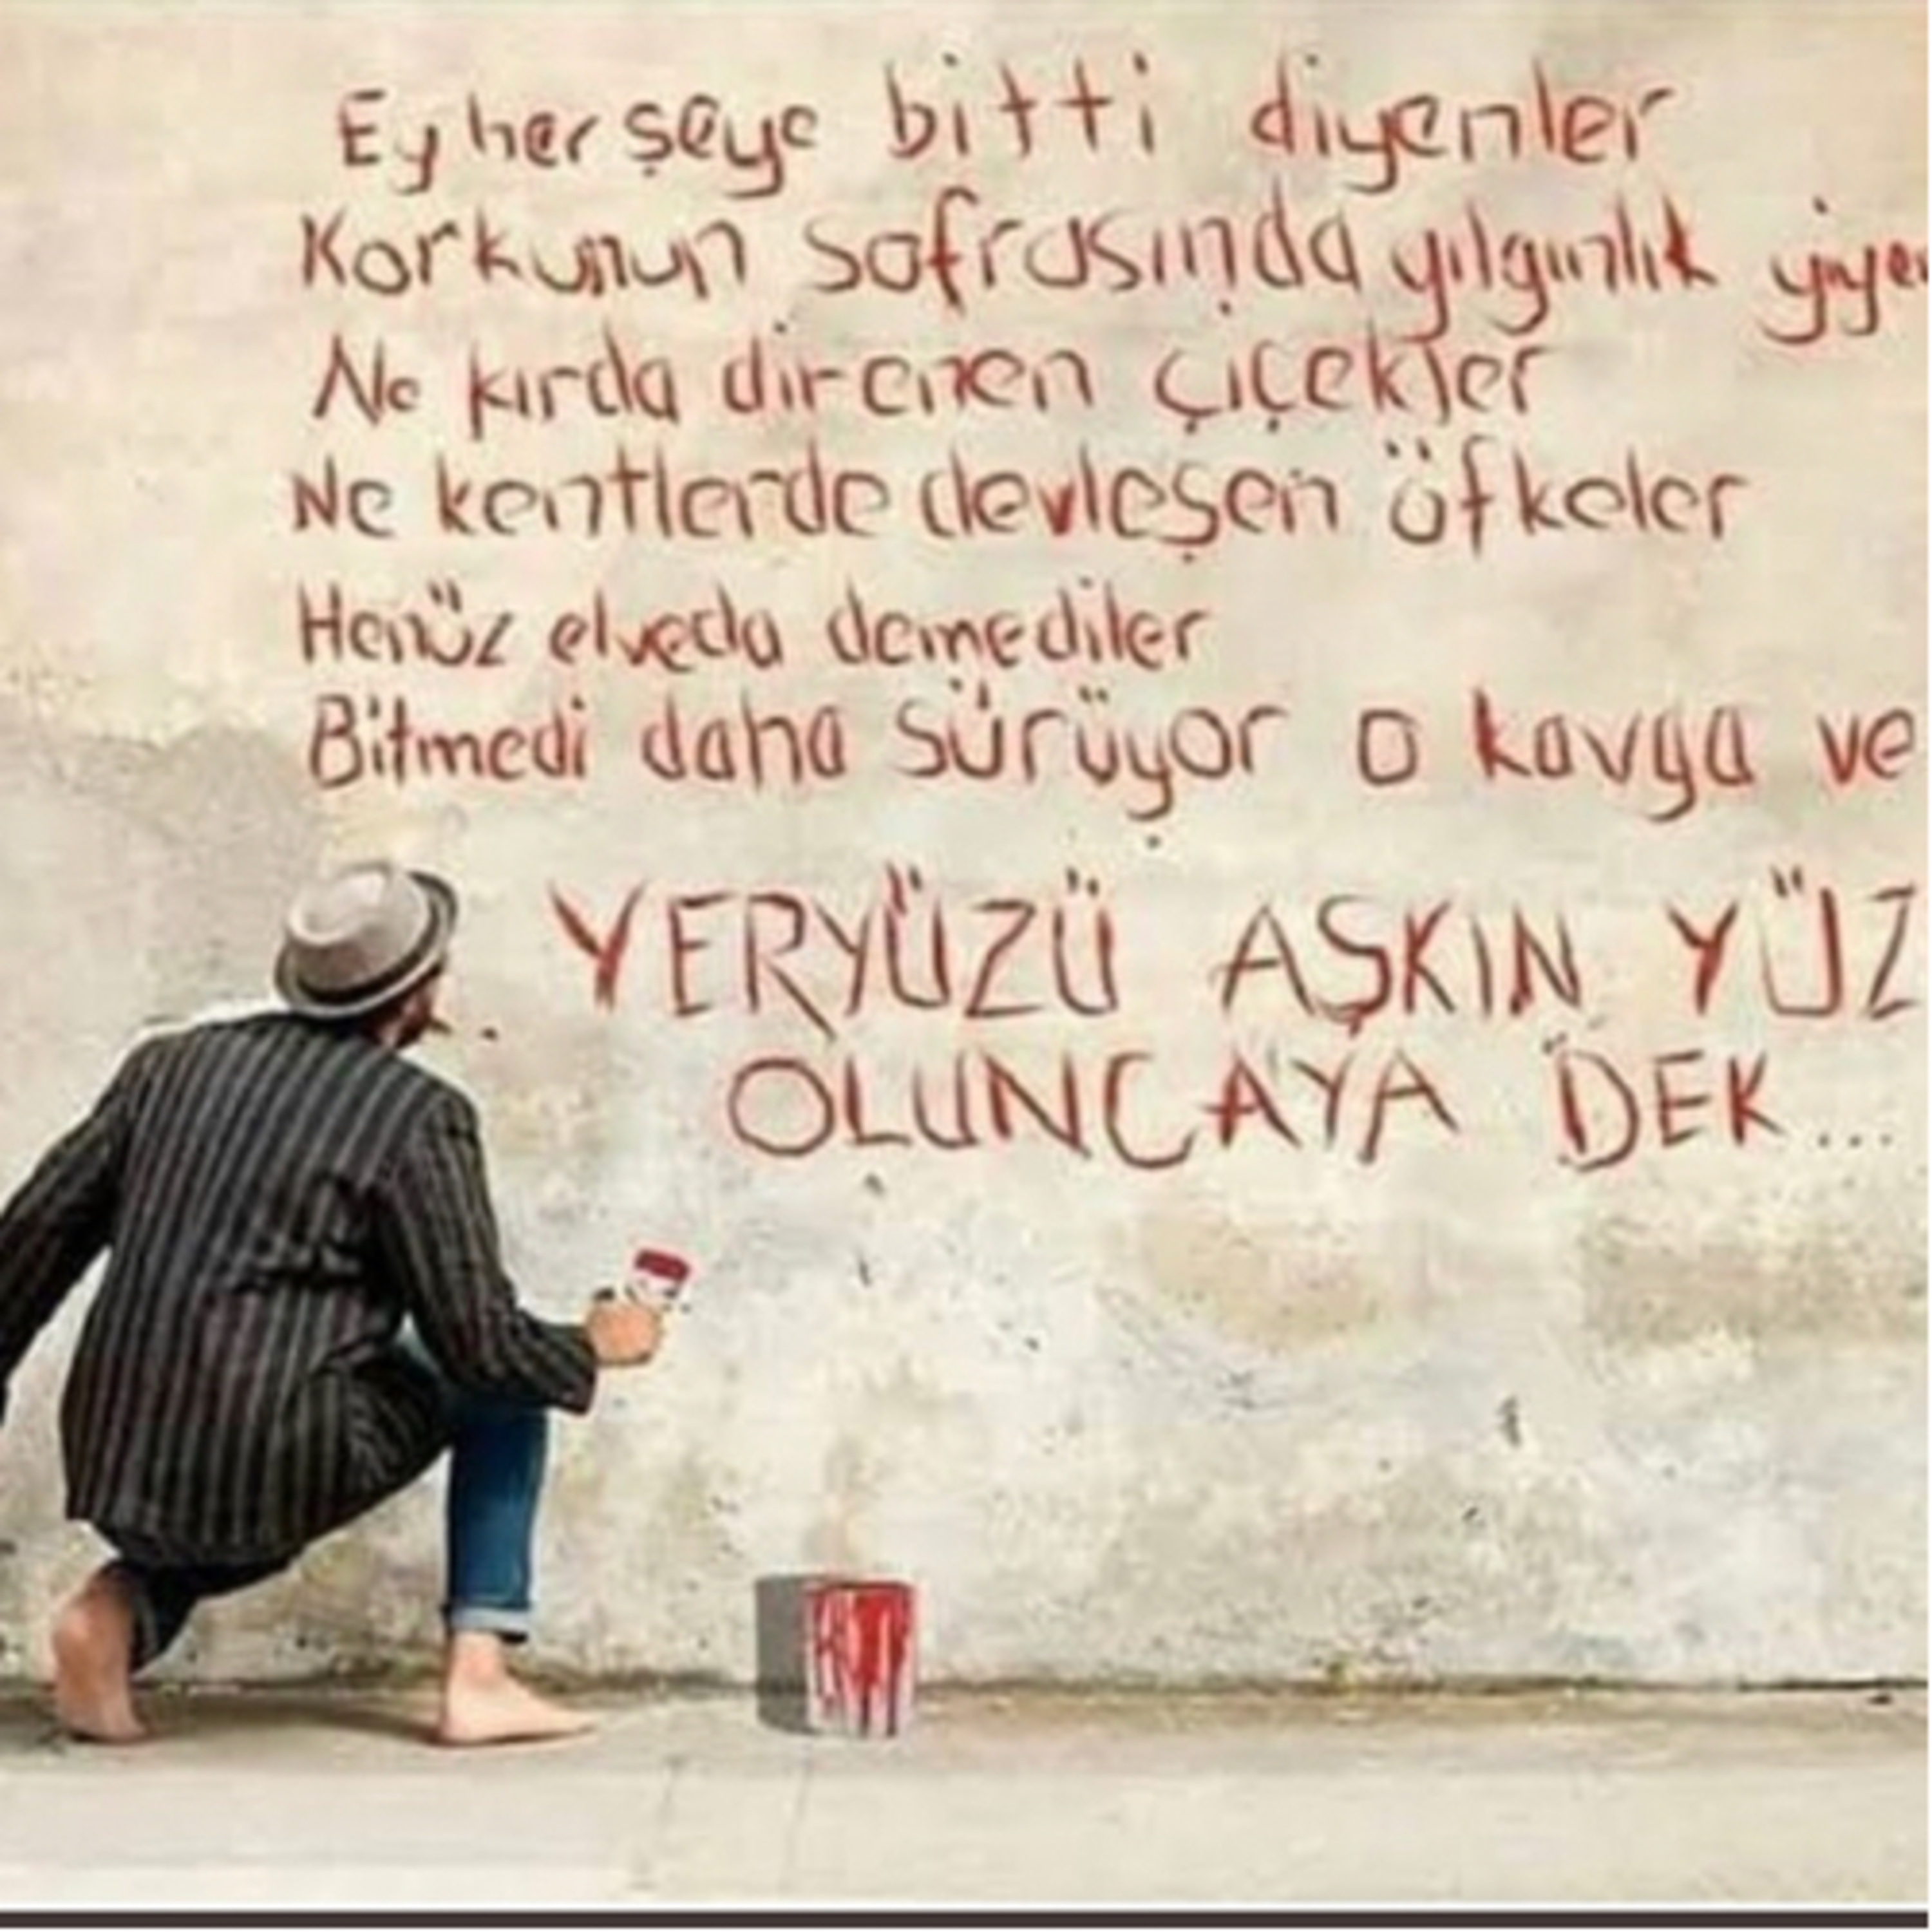 Ey her şeye bitti diyenler
Korkunun sofrasında yılgınlık
Ne kırda direnen çiçekler
Ne kentlerde devleşen öfkeler
Henüz elveda demediler
Bitmedi daha sürüyor o kavga ve
YERYÜZÜ AŞKIN YÜZ
OLUNCAYA DEK...